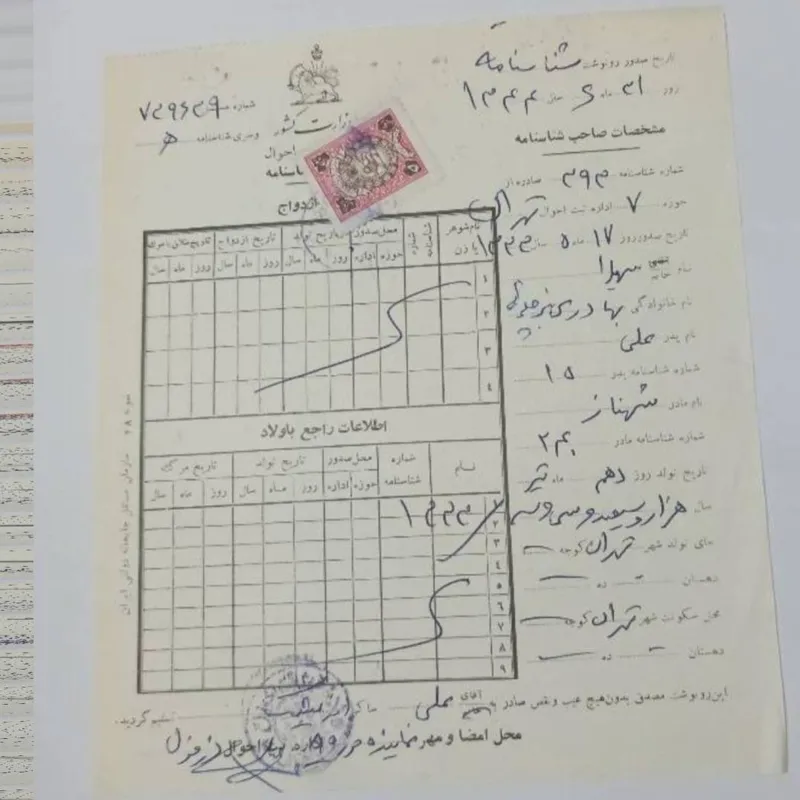 تاریخ صدور رونوشت شناسنامه
روز ۳۱ ماه ۶ سال ۱۳۴۴
شماره ۷۳۹۶۳۹
وسری شناسنامه ه
وزارت کشور
احوال
مشخصات صاحب شناسنامه
شماره شناسنامه ۳۹۳ صادره از
حوزه ۷ اداره ثبت احوال تهران
تاریخ صدور روز ۱۷ ماه ۵ سال ۱۳۳۳
نام خانم سهیلا
نام خانوادگی بهادری
نام پدر علی
شماره شناسنامه پدر ۱۵
نام مادر شهناز
شماره شناسنامه مادر
تاریخ تولد روز دهم ماه تیر
سال هزار و سیصد و سی و سه
جای تولد شهر تهران کوچه
دهستان ده
محل سکونت شهر تهران کوچه
دهستان ده
ازدواج
نام شوهر یا زن
شماره شناسنامه
محل صدور
تاریخ تولد
تاریخ ازدواج
تاریخ طلاق یا مرگ
حوزه اداره روز ماه سال روز ماه سال روز ماه سال
۱
۲
۳
۴
اطلاعات راجع باولاد
نام
شماره شناسنامه
محل صدور
تاریخ تولد
تاریخ مرگ
حوزه اداره روز ماه سال روز ماه سال
۱
۲
۳
۴
۵
۶
۷
۸
۹
۱۳۳۳
این رونوشت مصدق بدون هیچ عیب و نقص صادر به آقای علی تسلیم گردید.
محل امضا و مهر نماینده حوزه اداره احوال